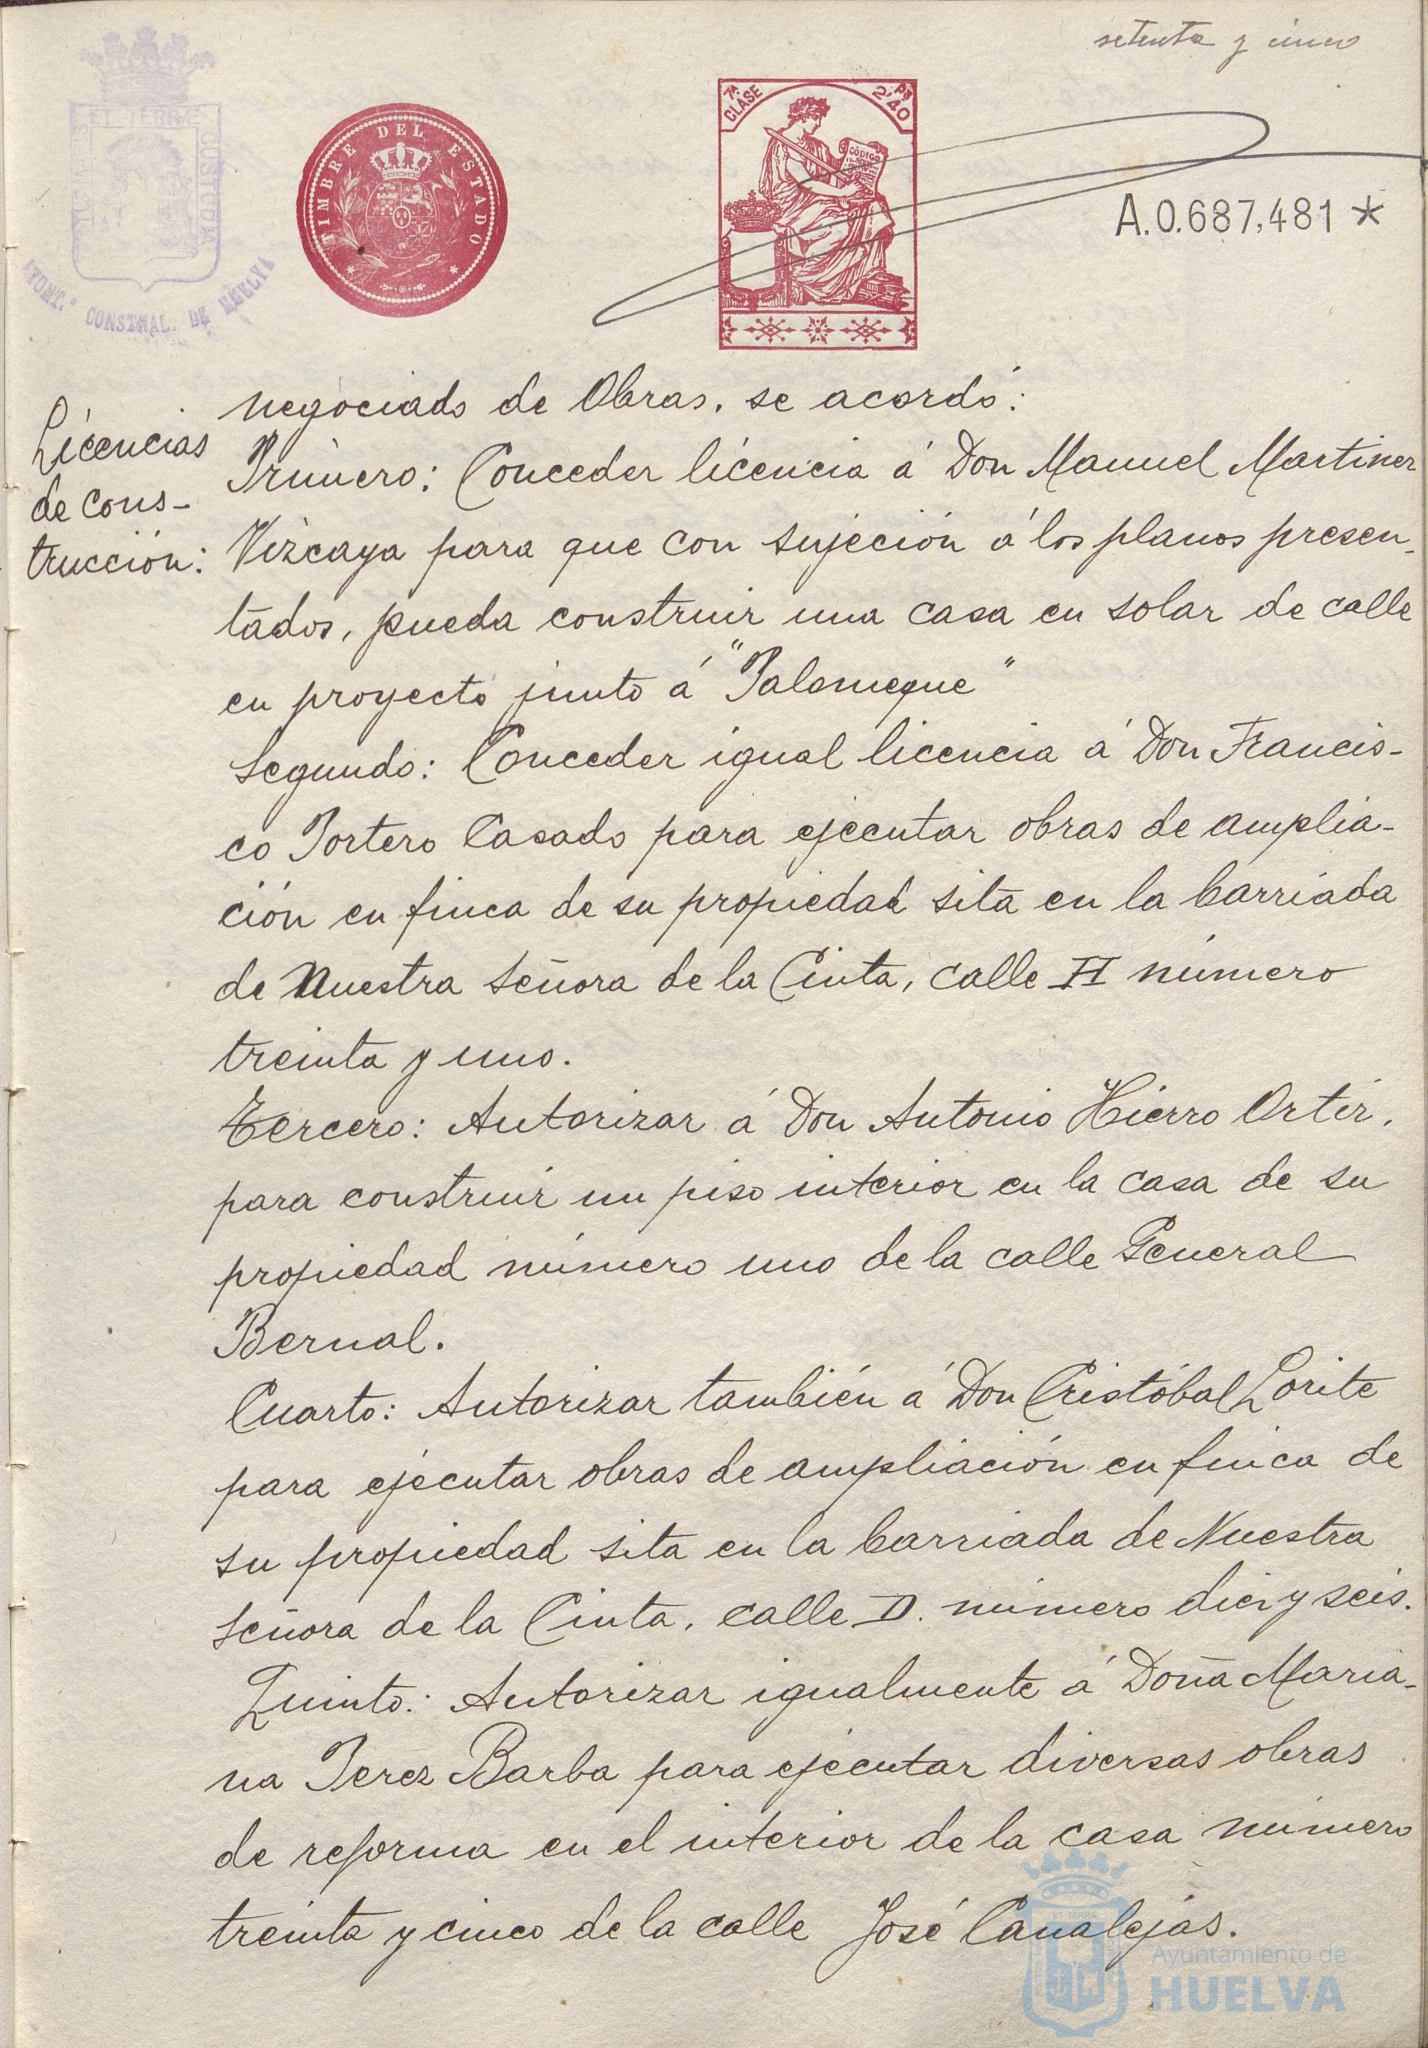 setenta y cinco
TIMBRE DEL ESTADO
7ª CLASE
Ps 2'40
CODIGO
A.0.687,481 *
ET TERRÆ CUSTODIA
AYUNT.º CONSTNAL. DE HUELVA
Licencias
de cons-
trucción:
negociado de Obras. se acordó:
Primero: Conceder licencia á Don Manuel Martinez
Vizcaya para que con sujeción á los planos presen-
tados, pueda construir una casa en solar de calle
en proyecto junto á "Palomeque"
Segundo: Conceder igual licencia á Don Francis-
co Portero Casado para ejecutar obras de amplia-
ción en finca de su propiedad sita en la barriada
de Nuestra Señora de la Cinta, calle H número
treinta y uno.
Tercero: Autorizar á Don Antonio Hierro Ortiz.
para construir un piso interior en la casa de su
propiedad número uno de la calle General
Bernal.
Cuarto: Autorizar también á Don Cristóbal Lorite
para ejecutar obras de ampliación en finca de
su propiedad sita en la barriada de Nuestra
Señora de la Cinta, calle D. número diez y seis.
Quinto: Autorizar igualmente á Doña Maria-
na Perez Barba para ejecutar diversas obras
de reforma en el interior de la casa número
treinta y cinco de la calle José Canalejas.
Ayuntamiento de
HUELVA